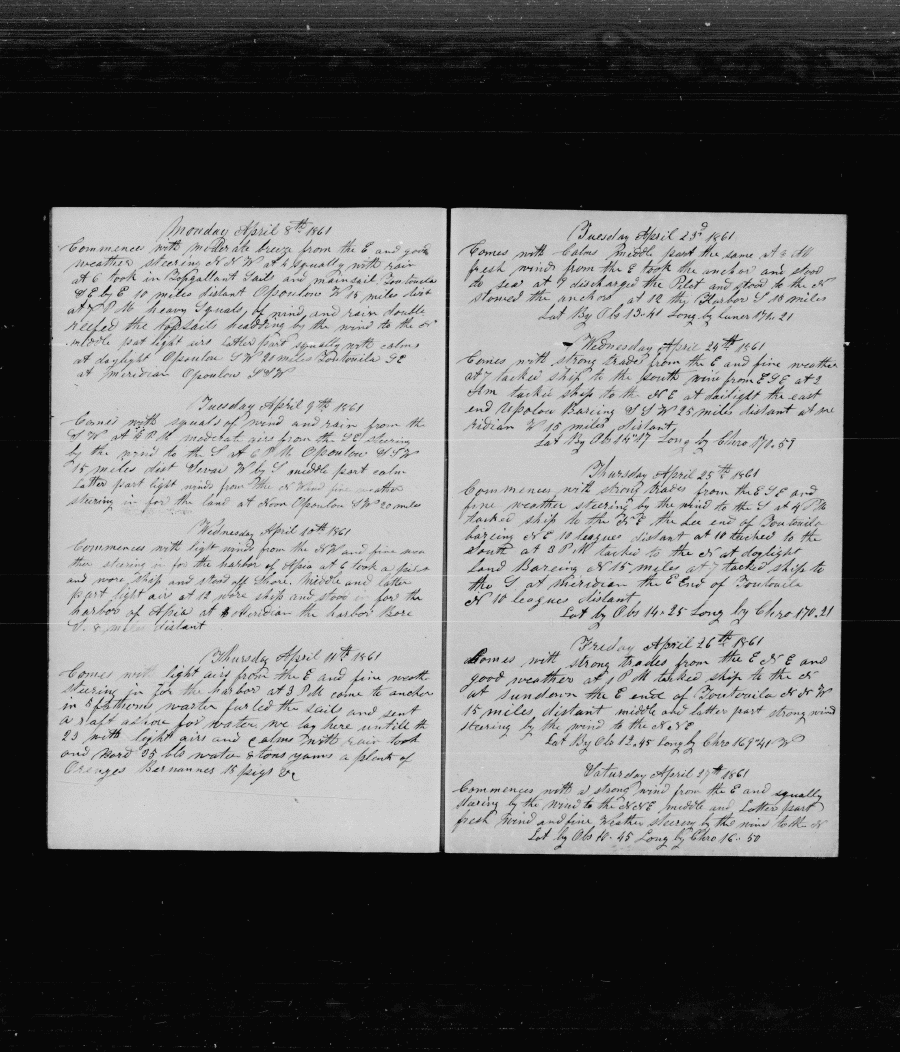 Monday April 8th 1861
Commences with moderate breeze from the E and good
weather steering N N W at 4 squally with rain
at 6 took in Topgallant Sails and mainsail Toutouila
S E by E 10 miles distant Opoulou W 15 miles dist
at P M heavy Squals of wind and rain double
reefed the topsails heading by the wind to the N
middle part light airs Latter part squally with calms
at daylight Opoulou S W 20 miles Toutouila S E
at meridian Opoulou S S W
Tuesday April 9th 1861
Comes with squals of wind and rain from the
S W at 4 P M moderate airs from the S E steering
by the wind to the S at 6 P M Opoulou S S W
15 miles dist W by S middle part calm
Latter part light winds from the N Wind fine weather
steering in for the land at Noon Opoulou S W 20 miles
Wednesday April 10th 1861
Commences with light winds from the N W and fine wea
ther steering in for the harbor of Apia at 6 took a
and wore ship and stood off Shore. Middle and latter
part light airs at 12 wore ship and stood in for the
harbor of Apia at Meridian the harbor Bore
S. 8 miles distant
Thursday April 11th 1861
Comes with light airs from the E and fine weath
steering in for the harbor at 3 P M come to anchor
in 5 fathoms warter furled the sails and sent
a raft ashore for water we lay here untill the
23 with light airs and calms with rain took
and bord 35 bls water tons yams a plenty of
Orenges Bernanners 15 pigs &c
Tuesday April 23d 1861
Comes with Calms Middle part the same at 3 AM
fresh winds from the E took the anchor and stood
to sea at 7 discharged the Pilot and stood to the N
stowed the anchors at 12 the Harbor S 18 miles
Lat By Obs 13.41 Long by luner 171.21
Wednesday April 24th 1861
Comes with strong trades from the E and fine weather
at 7 tacked ship to the south wind from E S E at 2
Am tacked ship to the N E at dailight the east
end Upolou Bareing S S W 25 miles distant at me
ridian W 15 miles distant
Lat By Obs 14.17 Long by Chro 170.59
Thursday April 25th 1861
Commences with strong trades from the E S E and
fine weather steering by the wind to the S at 4 PM
tacked ship to the N E the Lee end of Toutouila
bareing N E 10 leagues distant at 10 tacked to the
south at 3 P M tacked to the N at daylight
land Bareing N 15 miles at 7 tacked ship to
the S at meridian the E End of Toutouila
N 10 leagues distant
Lat by Obs 14.25 Long by Chro 170.21
Friday April 26th 1861
Comes with strong trades from the E N E and
good weather at 1 P M tacked ship to the N
at sundown the E end of Toutouila N N W
15 miles distant middle and latter part strong wind
steering by the wind to the N N E
Lat By Obs 12.45 Long by Chro 169°41 W
Saturday April 27th 1861
Commences with a strong wind from the E and squally
staring by the wind to the N N E middle and Latter part
fresh wind and fine weather steering by the wind to the N
Lat by Obs 10.45 Long by Chro 16.50